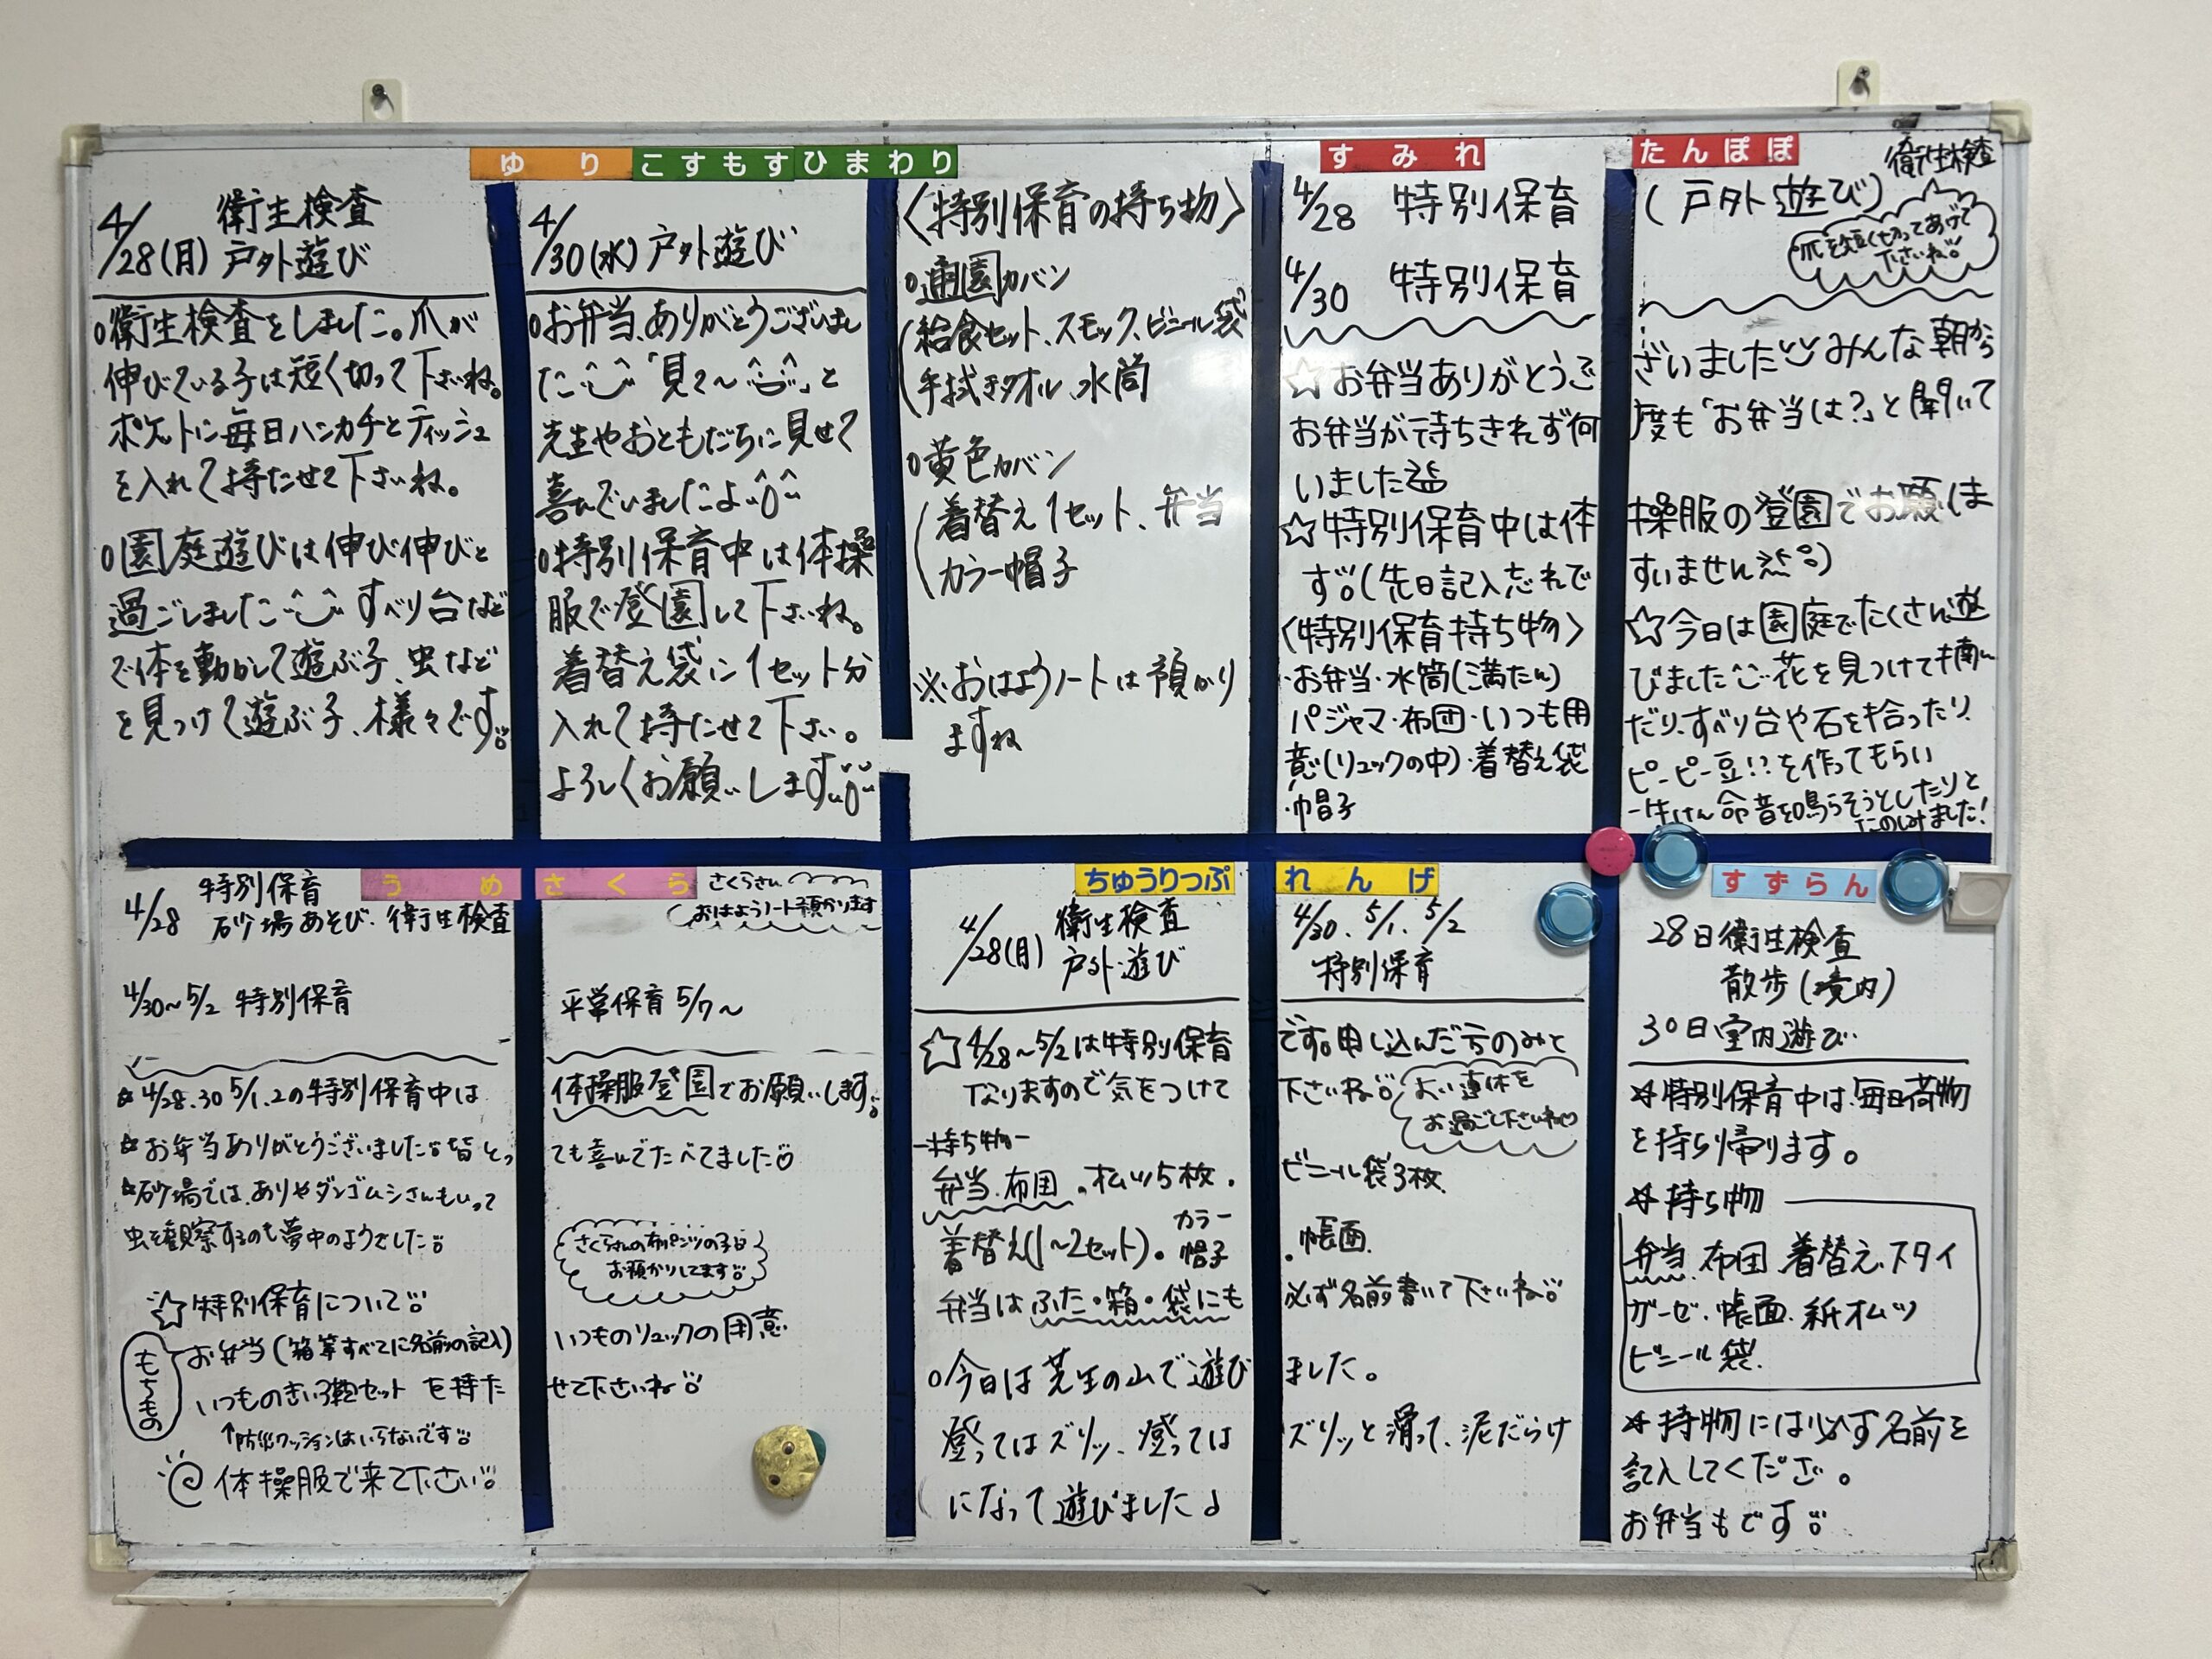 ゆり こすもす ひまわり
4/28(月) 衛生検査
戸外遊び
o衛生検査をしました。爪が
伸びている子は短く切って下さいね。
ポケットに毎日ハンカチとティッシュ
を入れて持たせて下さいね。
o園庭遊びは伸び伸びと
過ごしました すべり台など
で体を動かして遊ぶ子、虫など
を見つけて遊ぶ子、様々です。
4/30(水) 戸外遊び
oお弁当、ありがとうございまし
た 「見て〜」と
先生やおともだちに見せて
喜んでいましたよ
o特別保育中は体操
服で登園して下さいね。
着替え袋に1セット分
入れて持たせて下さい。
よろしくお願いします
〈特別保育の持ち物〉
o通園カバン
(給食セット、スモック、ビニール袋
手拭きタオル、水筒
o黄色カバン
(着替え1セット、弁当
カラー帽子
※おはようノートは預かり
ますね
すみれ たんぽぽ
4/28 特別保育 (戸外遊び) 衛生検査
爪を短く切ってあげて
下さいね
4/30 特別保育
☆お弁当ありがとうございました みんな朝から
お弁当が待ちきれず何度も「お弁当は?」と聞いて
いました
☆特別保育中は体操服の登園でお願いしま
す。(先日記入忘れですいません)
〈特別保育持ち物〉 ☆今日は園庭でたくさん遊
・お弁当・水筒(満たん) びました 花を見つけて摘ん
パジャマ・布団・いつも用 だり、すべり台や石を拾ったり、
意(リュックの中)・着替え袋 ピーピー豆!?を作ってもらい
・帽子 一生けん命音を鳴らそうとしたりと
たのしみました!
うめ さくら
4/28 特別保育
砂場あそび・衛生検査
さくらさん
おはようノート預かります
4/30〜5/2 特別保育 平常保育 5/7〜
☆4/28.30 5/1.2の特別保育中は 体操服登園でお願いします
☆お弁当ありがとうございました 皆とっても喜んでたべてました
☆砂場では、ありやダンゴムシさんもいって
虫を観察するのも夢中のようでした
さくらさんの布パンツの子
お預かりしてます
☆特別保育について
もちもの
お弁当(箱等すべてに名前の記入) いつものリュックの用意
いつものきいろ鞄セット を持たせて下さいね
↑防災クッションはいらないです
体操服で来て下さい
ちゅうりっぷ れんげ
4/28(月) 衛生検査
戸外遊び
4/30、5/1、5/2
特別保育
☆4/28〜5/2は特別保育です。申し込んだ方のみと
なりますので気をつけて下さいね
よい連休を
お過ごし下さいね
-持ち物-
弁当、布団、オムツ5枚・ビニール袋3枚
着替え(1〜2セット)・カラー帽子・帳面
弁当はふた・箱・袋にも必ず名前書いて下さいね
o今日は芝生の山で遊びました。
登ってはズリッ、登ってはズリッと滑って、泥だらけ
になって遊びました♪
すずらん
28日衛生検査
散歩(境内)
30日室内遊び
☆特別保育中は、毎日荷物
を持ち帰ります。
☆持ち物
弁当、布団、着替え、スタイ
ガーゼ、帳面、紙オムツ
ビニール袋
☆持物には必ず名前を
記入してくださ。
お弁当もです